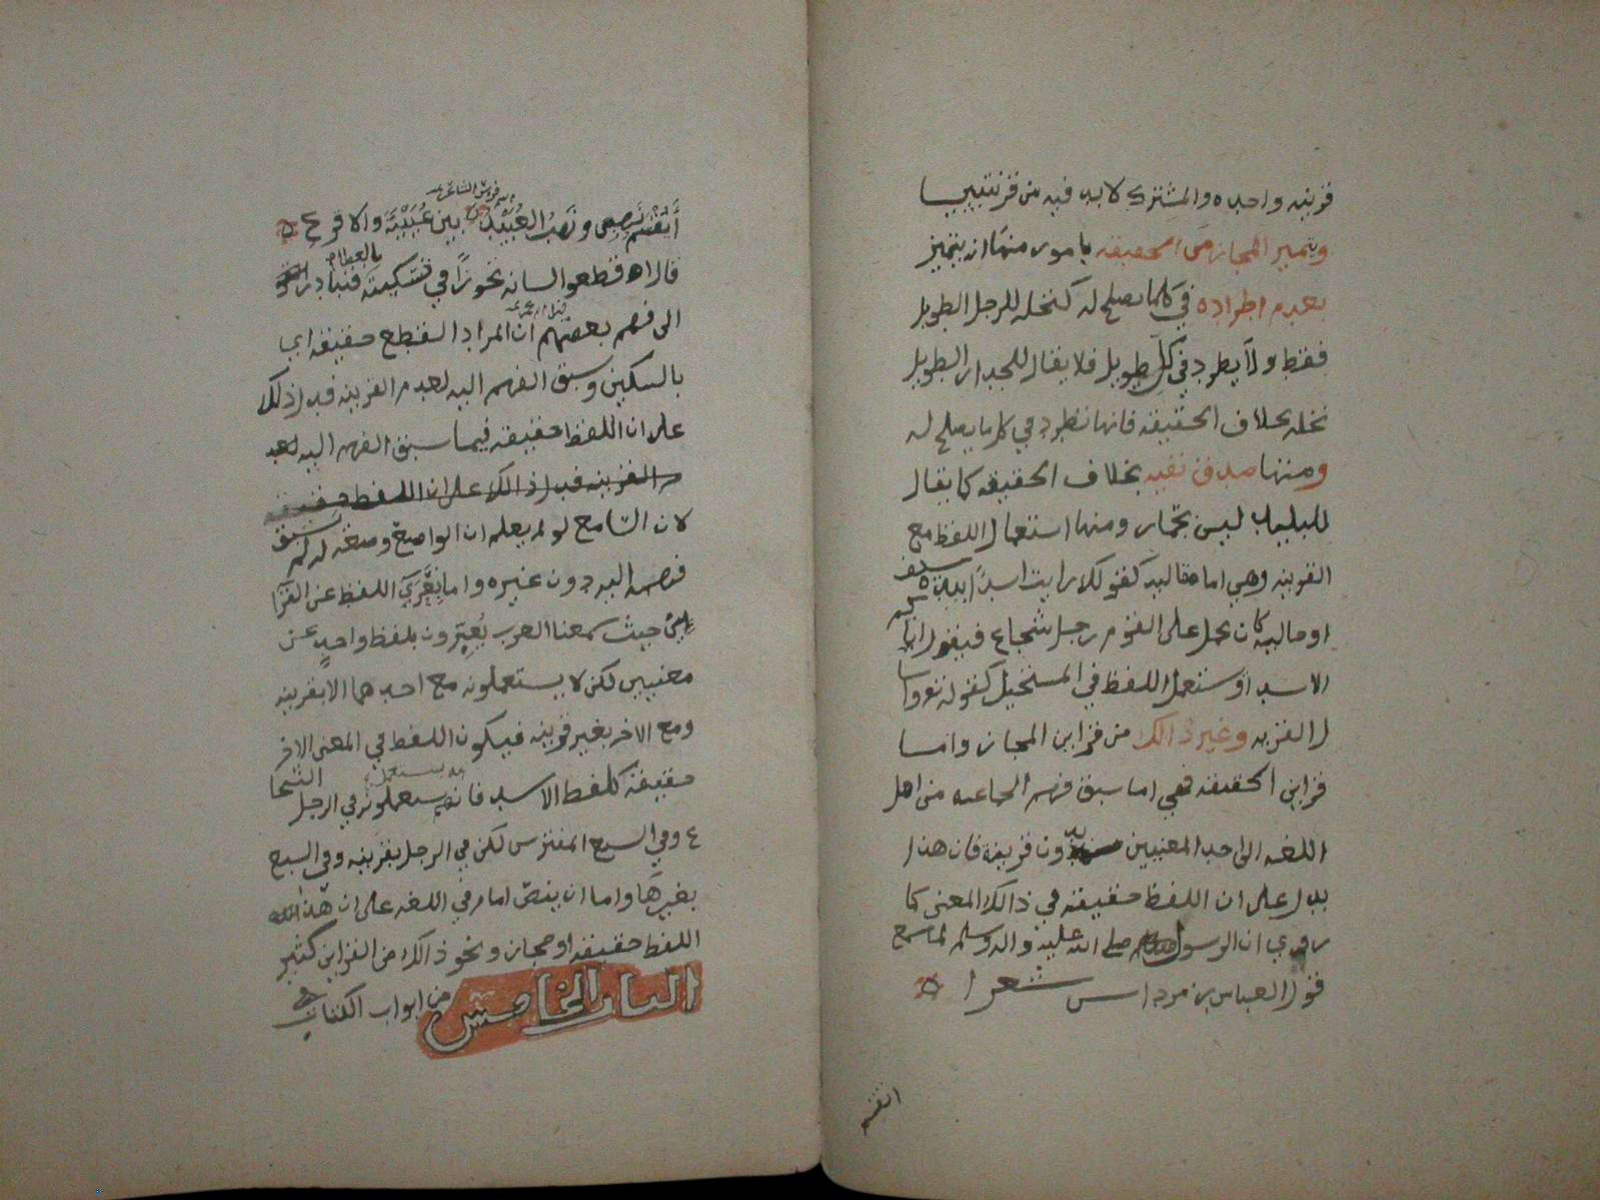 قرينه واحده والمشترك لا بد فيه من قرينتين
ويتميز المجاز من الحقيقه بامور منها ان يتميز
بعدم اطراده في كلما يصلح له كنخله للرجل الطويل
فقط ولا يطرد في كل طويل فلا يقال للجدار الطويل
نخله بخلاف الحقيقه فانها تطرد في كل ما يصلح له
ومنها صدق نفيه بخلاف الحقيقه كما يقال
للبليد ليس بحمار ومنها استعمال اللفظ مع
القرينه وهي اما مقاليه كقولك رايت اسدًا بيده سيف
او حاليه كان يحمل على القوم رجل شجاع فيقول اتاكم
الاسد او ستعمل اللفظ في المستحيل كقوله تعو واسا
ل القريه وغير ذالك من قراين المجاز واما
قراين الحقيقه فهي اما سبق فهم الجماعه من اهل
اللغه الى احد المعنيين بدون قرينة فان هذا
يدل على ان اللفظ حقيقه في ذالك المعنى كما
روي ان الرسول صلى الله عليه واله وسلم لما سمع
قول العباس بن مرداس شعرا
اتقسم
أَتَقْسِم نَهبِي ونَهبُ العُبَيْد بين عُيَيْنَة والاقرع
قال اه قطعوا لسانه تجوزًا في تسكيته بالعطا فتبادر
الى فهم بعضهم ان المراد القطع حقيقه اي
بالسكين وسبق الفهم اليه لعدم القرينه فدل ذلك
على ان اللفظ حقيقه فيما سبق الفهم اليه لعد
م القرينه فدل ذالك على ان اللفظ حقيقه
لان السامع لو لم يعلم ان الواضع وضعه له لم سبق
فهمه اليه دون غيره واما تعَّري اللفظ عن القرا
ين حيث سمعنا العرب يُعبّرون بلفظ واحدٍ عن
معنيين لكن لا يستعملونه مع احدهما الا بقرينه
ومع الاخر بغير قرينه فيكون اللفظ في المعنى الاخر
حقيقة كلفظ الاسد فانه يستعملونه في الرجل الشجا
ع وفي السبع المفترس لكن في الرجل بقرينه وفي السبع
بغيرها واما ان ينصّ امام في اللغه على ان هذا
اللفظ حقيقه او مجاز ونحو ذالك من القراين كثير
الباب الخامس من ابواب الكتاب في